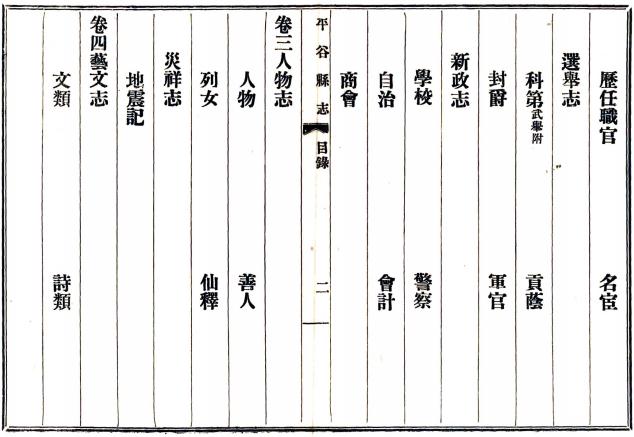 歷任職官　名宦
選舉志
科第武舉附　貢蔭
封爵　軍官
新政志
學校　警察
自治　會計
商會
平谷縣志　目錄　二
卷三人物志
人物　善人
列女　仙釋
災祥志
地震記
卷四藝文志
文類　詩類